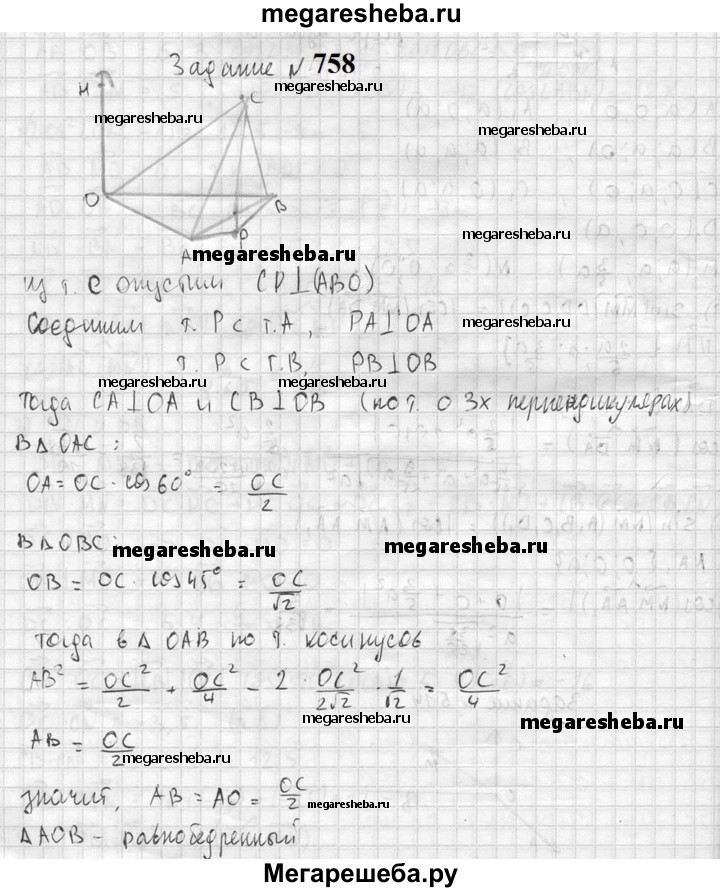 megaresheba.ru
Задание № 758
megaresheba.ru
H
C
megaresheba.ru
megaresheba.ru
O
B
A
P
megaresheba.ru
megaresheba.ru
из т. C опустим CP⊥(ABO)
Соединим т. P с т. A, PA⊥OA
megaresheba.ru
т. P с т. B, PB⊥OB
megaresheba.ru
megaresheba.ru
Тогда CA⊥OA и CB⊥OB (по т. о 3х перпендикулярах)
В ΔOAC:
OA = OC · cos 60° = OC/2
В ΔOBC:
megaresheba.ru
megaresheba.ru
OB = OC · cos 45° = OC/√2
тогда в Δ OAB по т. косинусов
AB² = OC²/2 + OC²/4 − 2 · OC²/2√2 · 1/√2 = OC²/4
megaresheba.ru
megaresheba.ru
AB = OC/2
megaresheba.ru
значит, AB = AO = OC/2
megaresheba.ru
ΔAOB – равнобедренный
Мегарешеба.ру